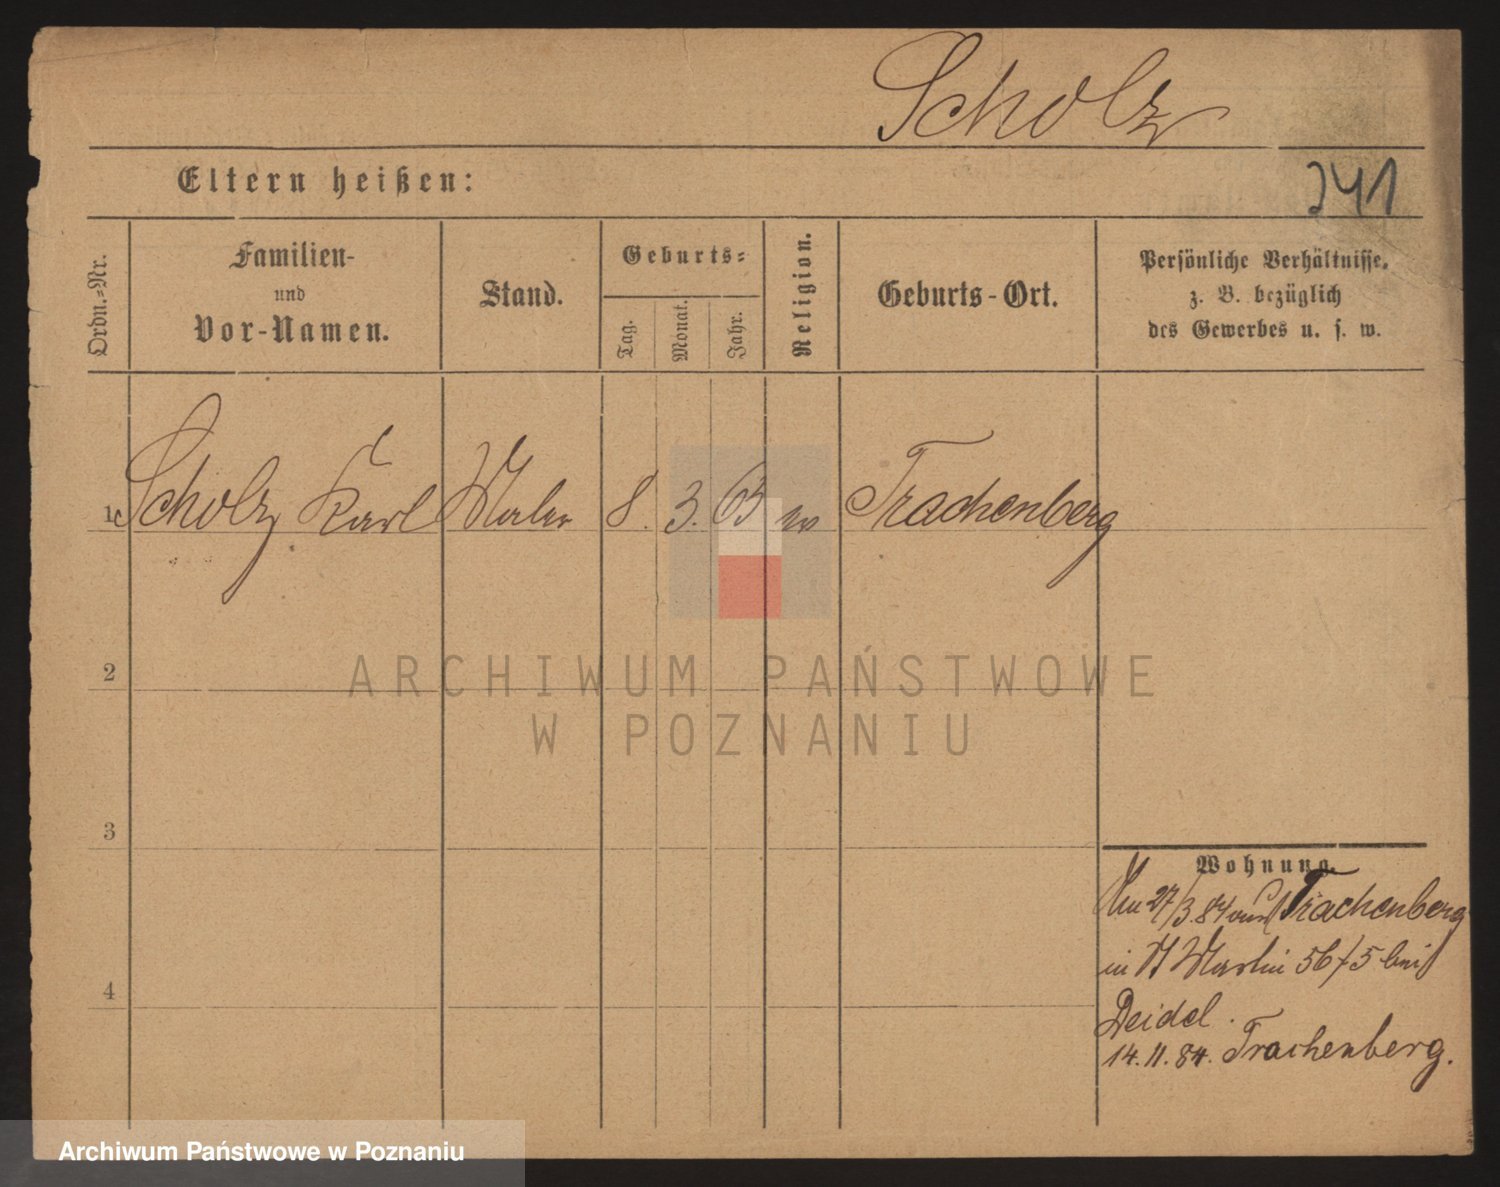 Scholz
Eltern heißen:
241
Ordn.-Nr.
Familien-
und
Vor-Namen.
Stand.
Geburts-
Tag.
Monat.
Jahr.
Religion.
Geburts-Ort.
Persönliche Verhältnisse,
z. B. bezüglich
des Gewerbes u. s. w.
1 Scholz Karl Maler 8. 3. 63 Trachenberg
2
3
4
Wohnung.
27/3. 84 Trachenberg
in St Martin 56/5 bei
Deidel.
14. 11. 84. Trachenberg.
ARCHIWUM PAŃSTWOWE
W POZNANIU
Archiwum Państwowe w Poznaniu